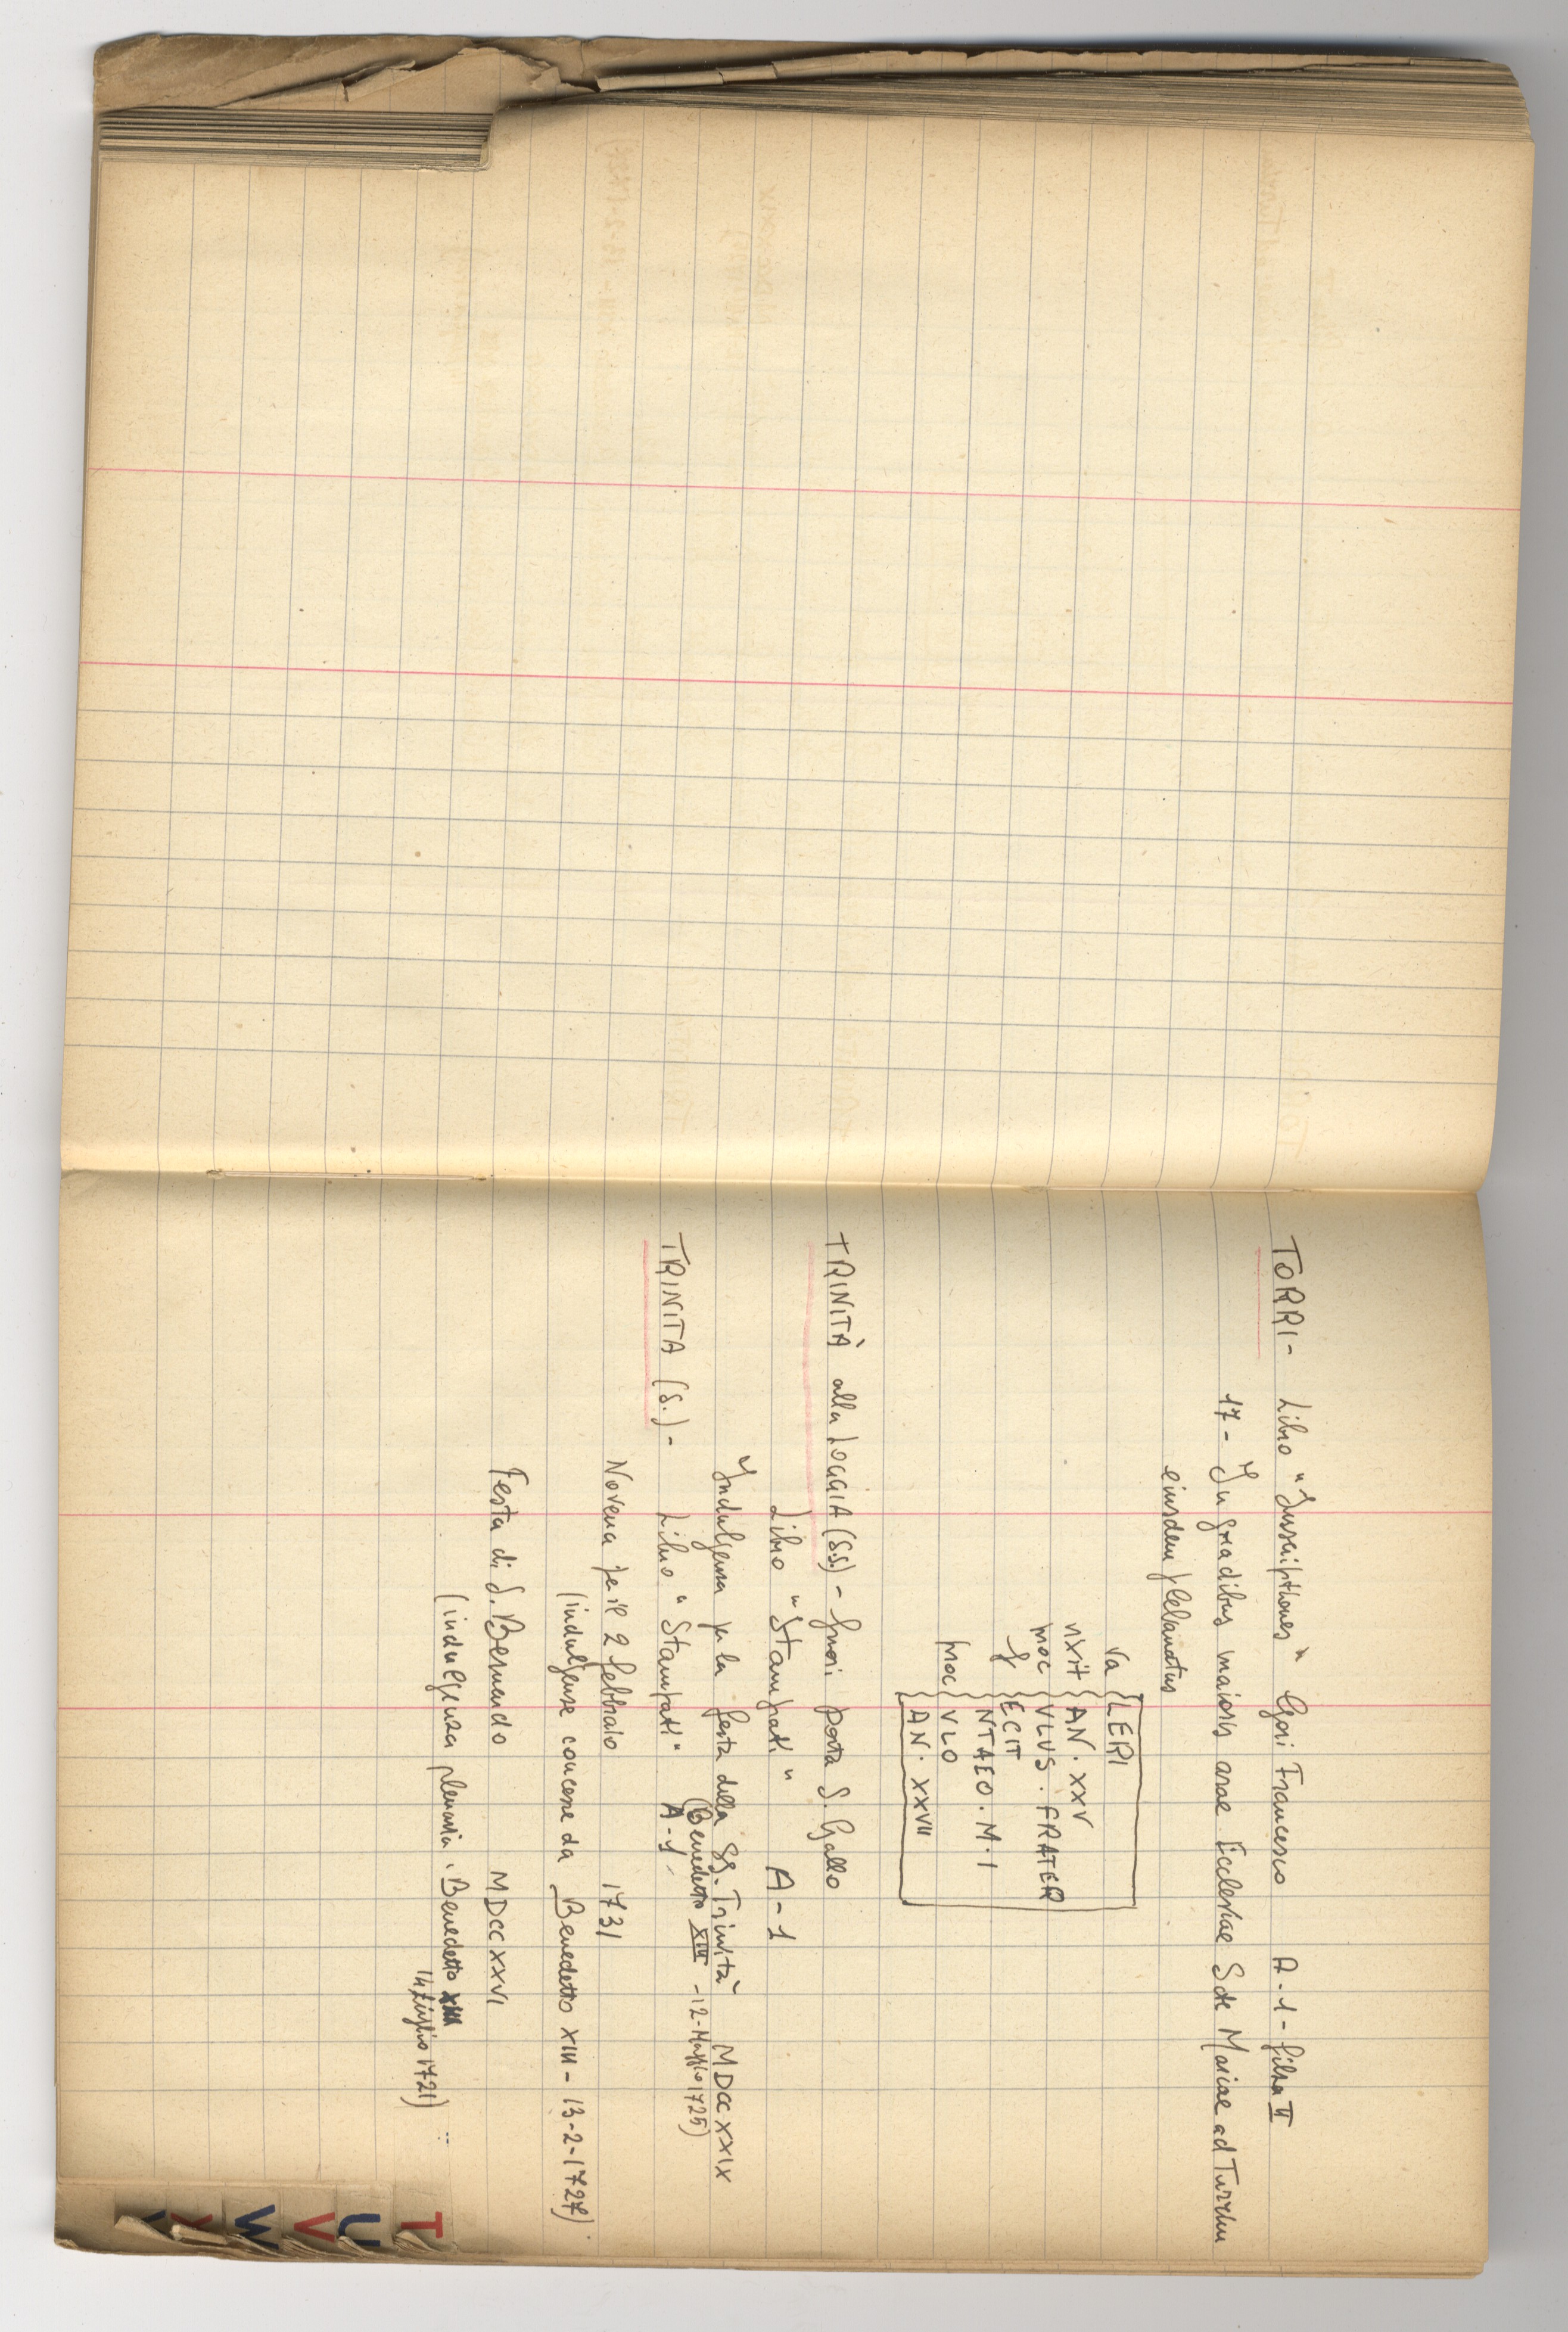 TORRI - Libro "Inscriptiones" Gori Francesco A-1-filza II
17 - In gradibus maioris arae Ecclesiae Sctae Mariae ad Turrim
eiusdem plebanatus
Va LERI
vixit AN. XXV
moc VLVS. FRATER
f ECIT
NTAEO. M. I
moc VLO
AN. XXVII
TRINITÀ alla LOGGIA (SS.) - fuori porta S. Gallo
Libro "Stampati" A-1
Indulgenza per la festa della SS. Trinità MDCCXXIX
(Benedetto XIII -12-Maggio 1725)
TRINITA (S.) - Libro "Stampati" A-1.
Novena per il 2 febbraio 1731
(indulgenze concesse da Benedetto XIII - 13-2-1727).
Festa di S. Bernardo MDCCXXVI
(indulgenza plenaria. Benedetto XIII
14 Luglio 1721)
T
U
V
W
X